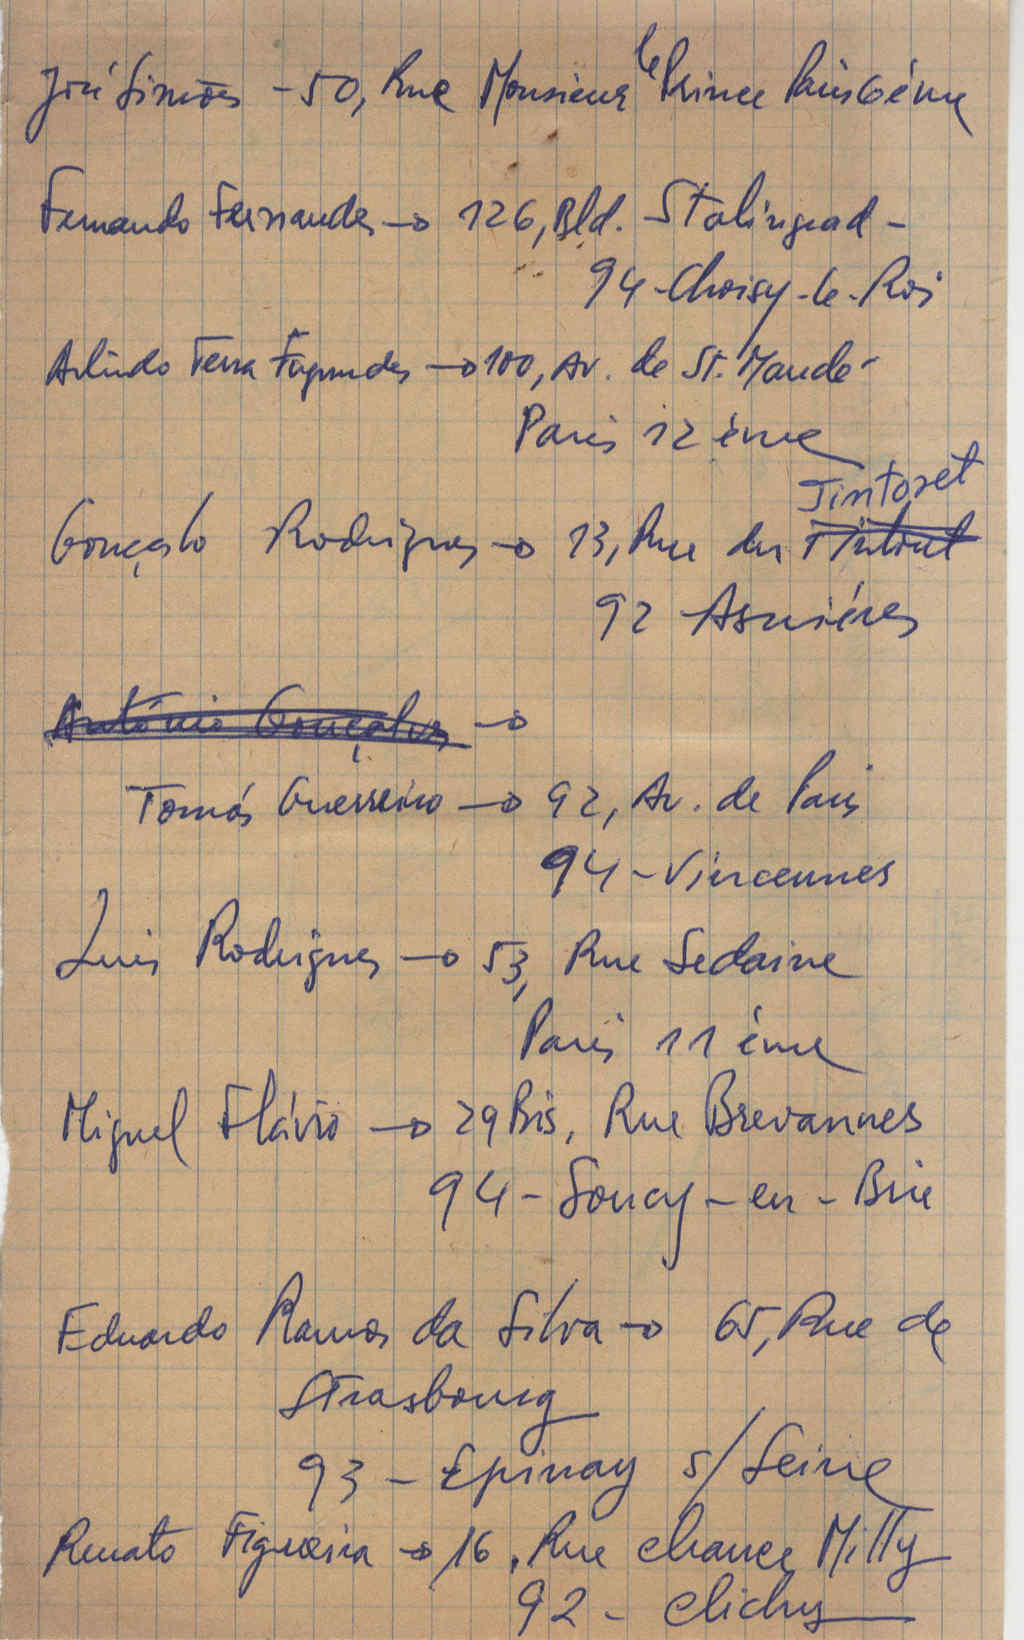 José Simões - 50, Rue Monsieur le Prince Paris 6ème
Fernando Fernandes → 126, Bld. Stalingrad -
94 - Choisy-le-Roi
Arlindo Terra Fagundes → 100, Av. de St. Mandé
Paris 12 ème
Tintoret
Gonçalo Rodrigues → 13, Rue du
92 Asnières
António Gonçalves →
Tomás Guerreiro → 92, Av. de Paris
94 - Vincennes
Luis Rodrigues → 53, Rue Sedaine
Paris 11 ème
Miguel Flávio → 29 Bis, Rue Brevannes
94 - Soucy - en - Brie
Eduardo Ramos da Silva → 65, Rue de
Strasbourg
93 - Epinay s/Seine
Renato Figueira → 16, Rue chance Milly
92 - clichy